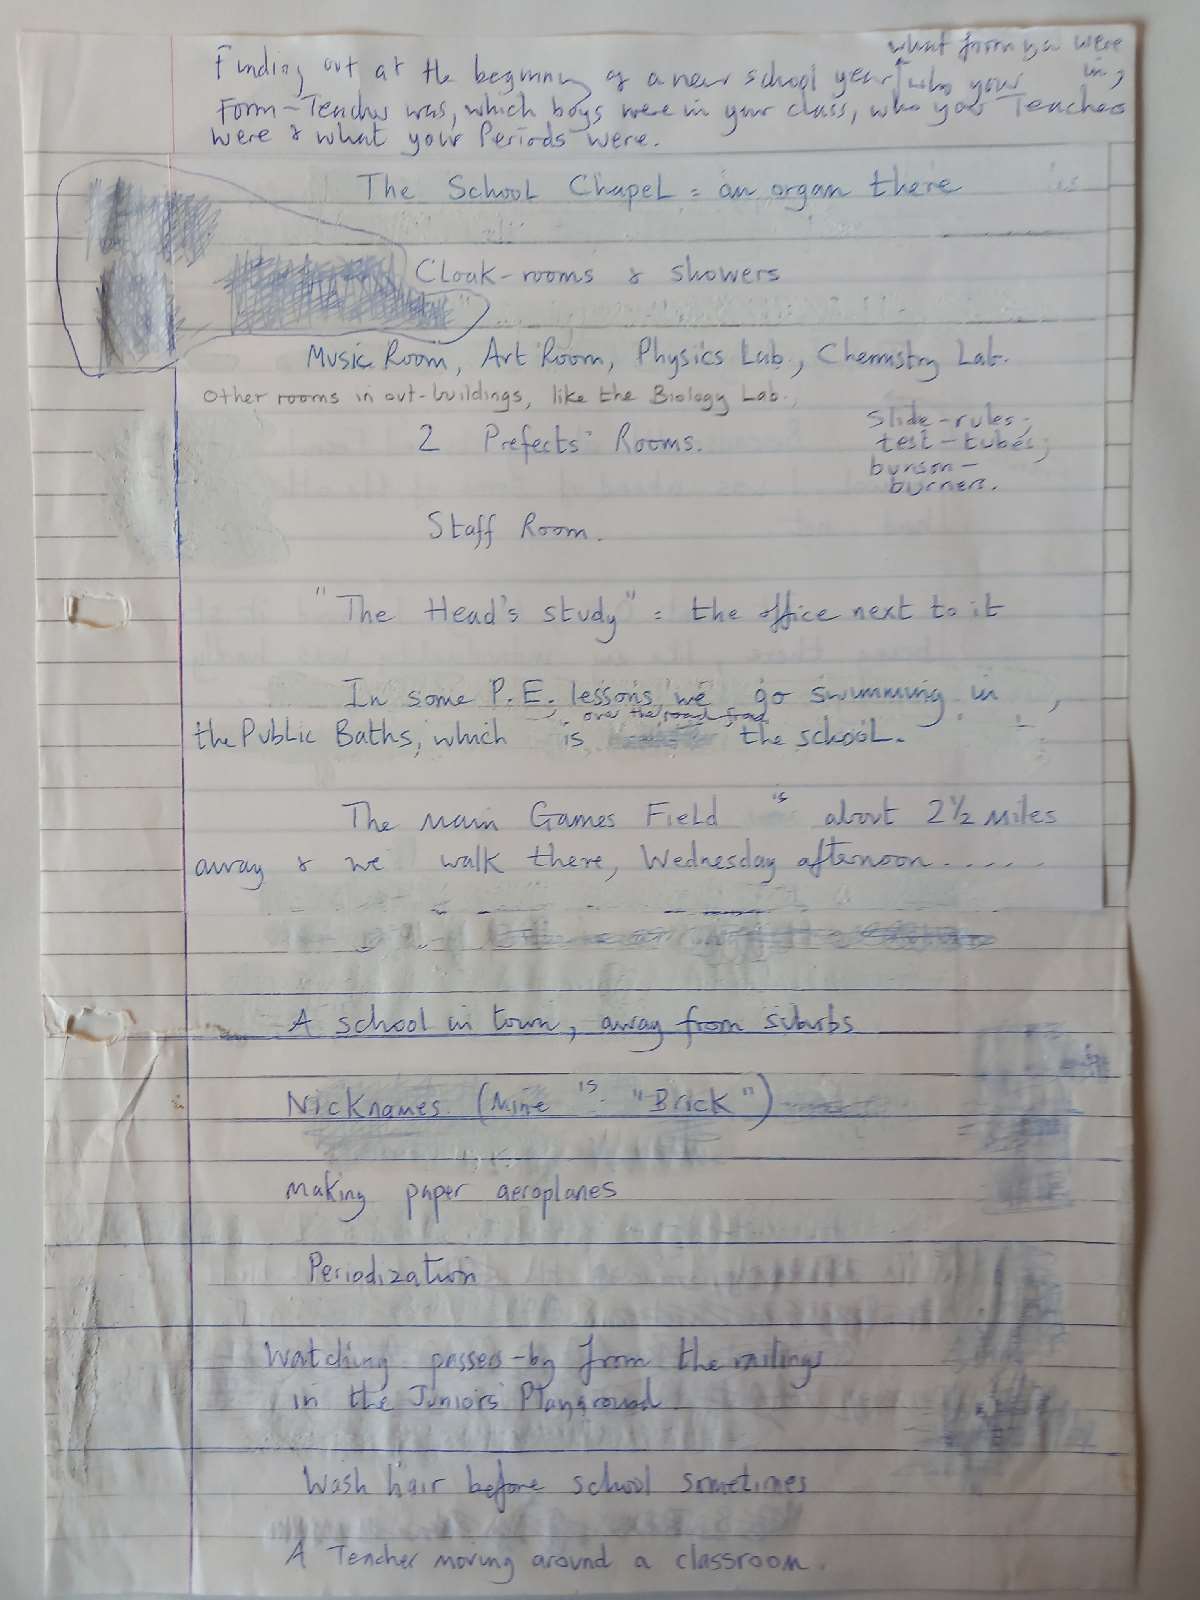 what form you were
Finding out at the beginning of a new school year, who your in,
Form-Teacher was, which boys were in your class, who your Teachers
were & what your Periods were.
The School Chapel = an organ there
Cloak-rooms & showers
Music Room, Art Room, Physics Lab., Chemistry Lab.
Other rooms in out-buildings, like the Biology Lab.,
slide-rules;
2 Prefects' Rooms.
test-tubes;
bunson-
burners.
Staff Room.
"The Head's study" = the office next to it
In some P.E. lessons we go swimming in
over the road from
the Public Baths, which is the school.
The main Games Field is about 2½ miles
away & we walk there, Wednesday afternoon.....
A school in town, away from suburbs
Nicknames. (Mine is "Brick")
Making paper aeroplanes
Periodization
Watching passers-by from the railings
in the Juniors' Playground
Wash hair before school sometimes
A Teacher moving around a classroom.